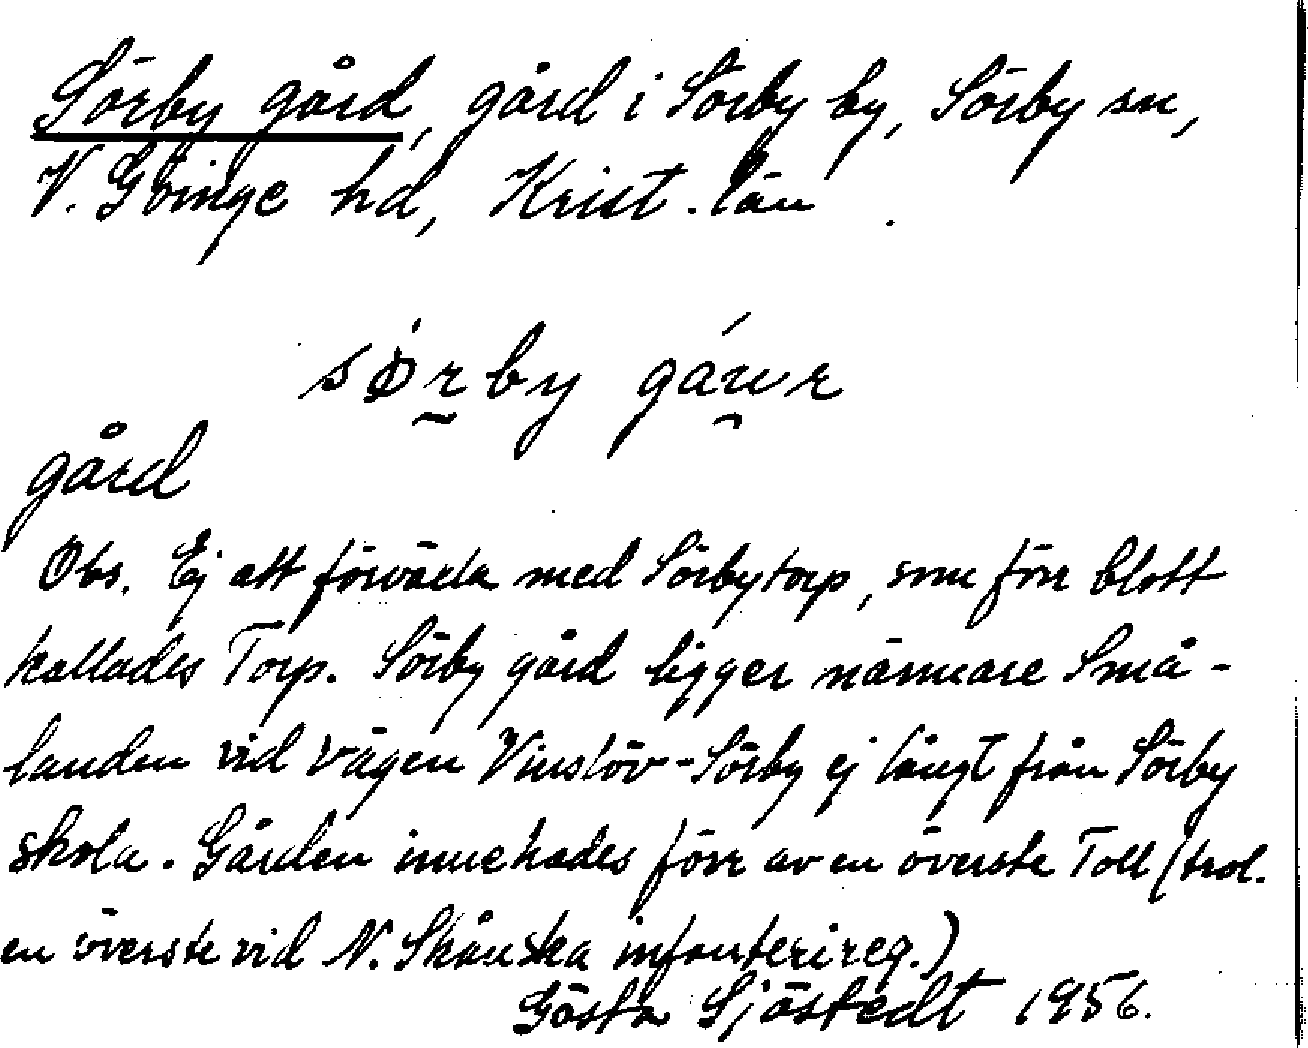 Sörby gård, gård i Sörby by, Sörby sn,
V. Göinge hd, Krist. län
sørby gáur
gård
Obs. Ej att förväxla med Sörbytorp, som förr blott
kallades Torp. Sörby gård ligger närmare Små-
landen vid vägen Vinslöv-Sörby ej långt från Sörby
skola. Gården innehades förr av en överste Toll (trol.
en överste vid N. Skånska infanterireg.)
Gösta Sjöstedt 1956.